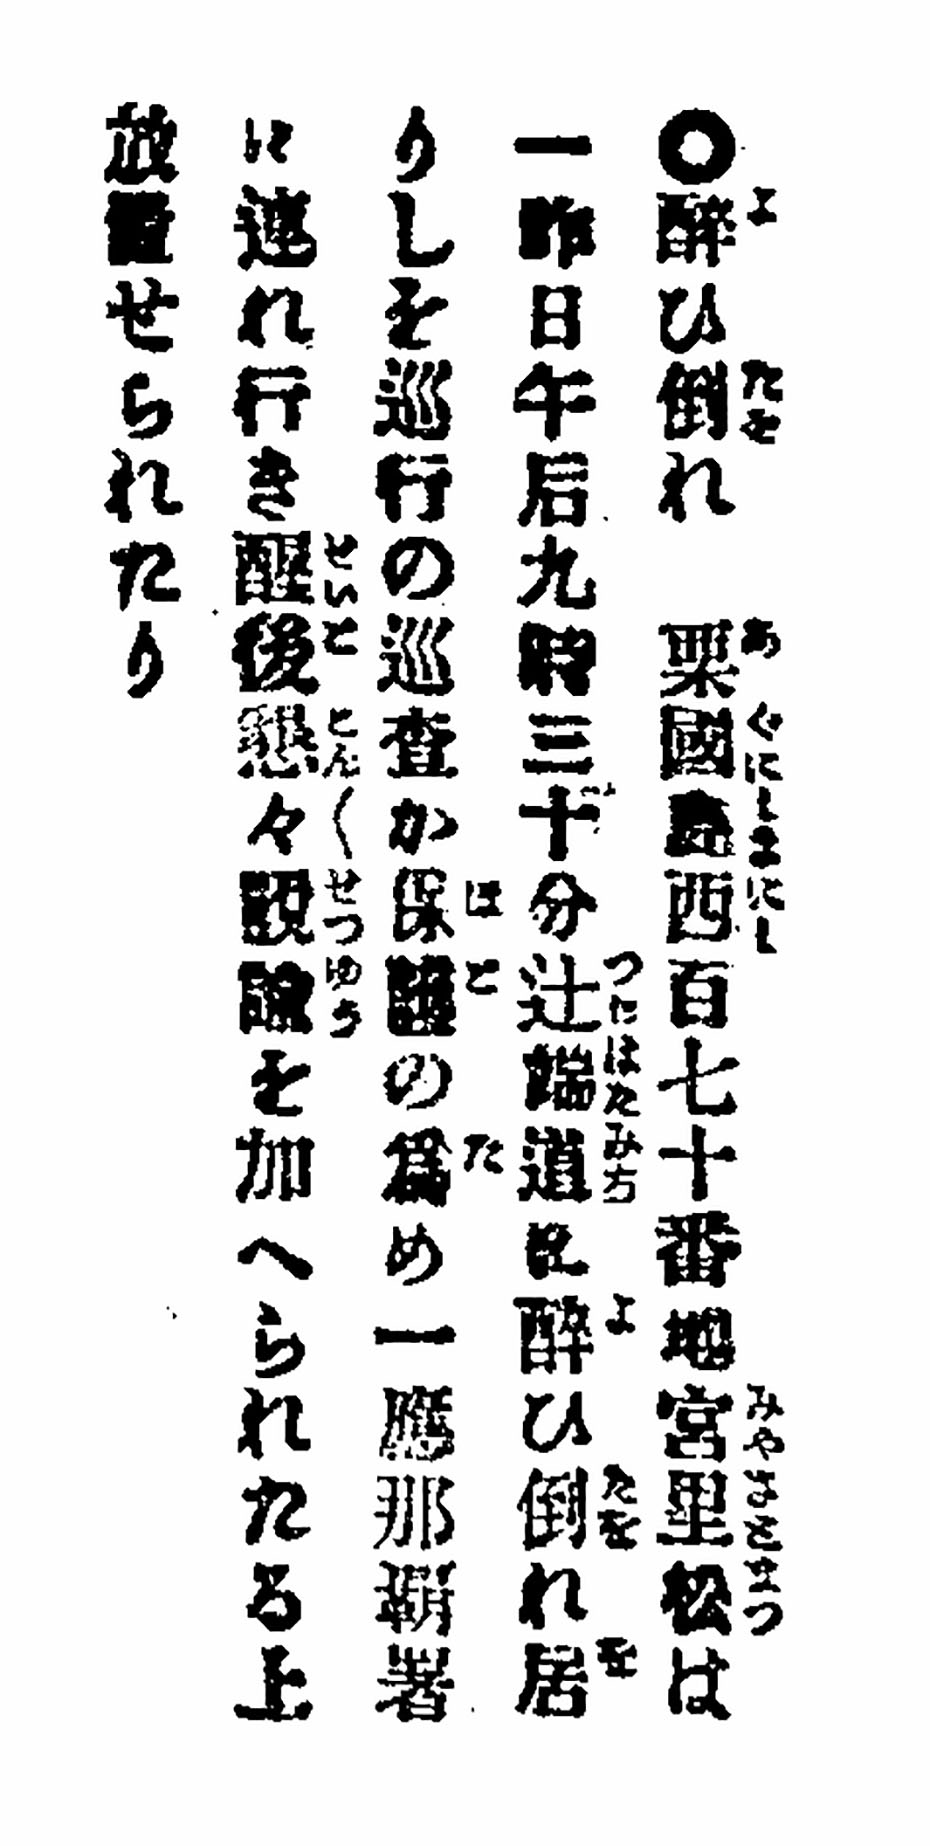 〇醉ひ倒れ　粟國島西百七十番地宮里松は
一昨日午后九時三十分辻端道に醉ひ倒れ居
りしを巡行の巡査か保護の爲め一應那覇署
に連れ行き醒後懇々說諭を加へられたる上
放置せられたり